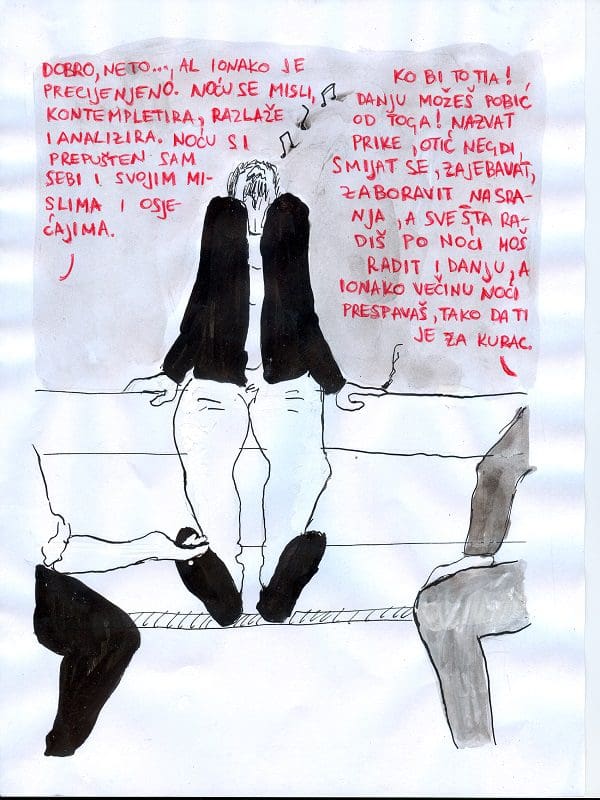 DOBRO, NETO..., AL IONAKO JE
PRECIJENJENO. NOĆU SE MISLI,
KONTEMPLETIRA, RAZLAŽE
I ANALIZIRA. NOĆU SI
PREPUŠTEN SAM
SEBI I SVOJIM MI-
SLIMA I OSJE-
ĆAJIMA.
KO BI TO TIA!
DANJU MOŽEŠ POBIĆ
OD TOGA! NAZVAT
PRIKE, OTIĆ NEGDI,
SMIJAT SE, ZAJEBAVAT,
ZABORAVIT NA SRA-
NJA, A SVE ŠTA RA-
DIŠ PO NOĆI MOŠ
RADIT I DANJU, A
IONAKO VEĆINU NOĆI
PRESPAVAŠ, TAKO DA TI
JE ZA KURAC.